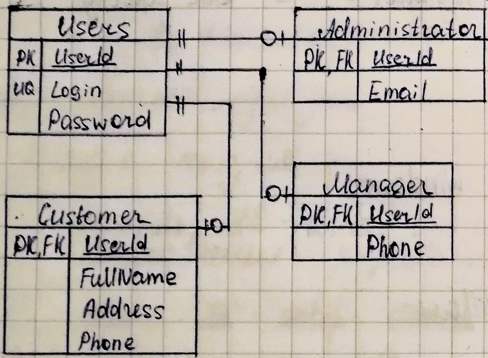 Users
PK UserId
UQ Login
Password
Administrator
PK, FK UserId
Email
Manager
PK, FK UserId
Phone
Customer
PK, FK UserId
FullName
Address
Phone